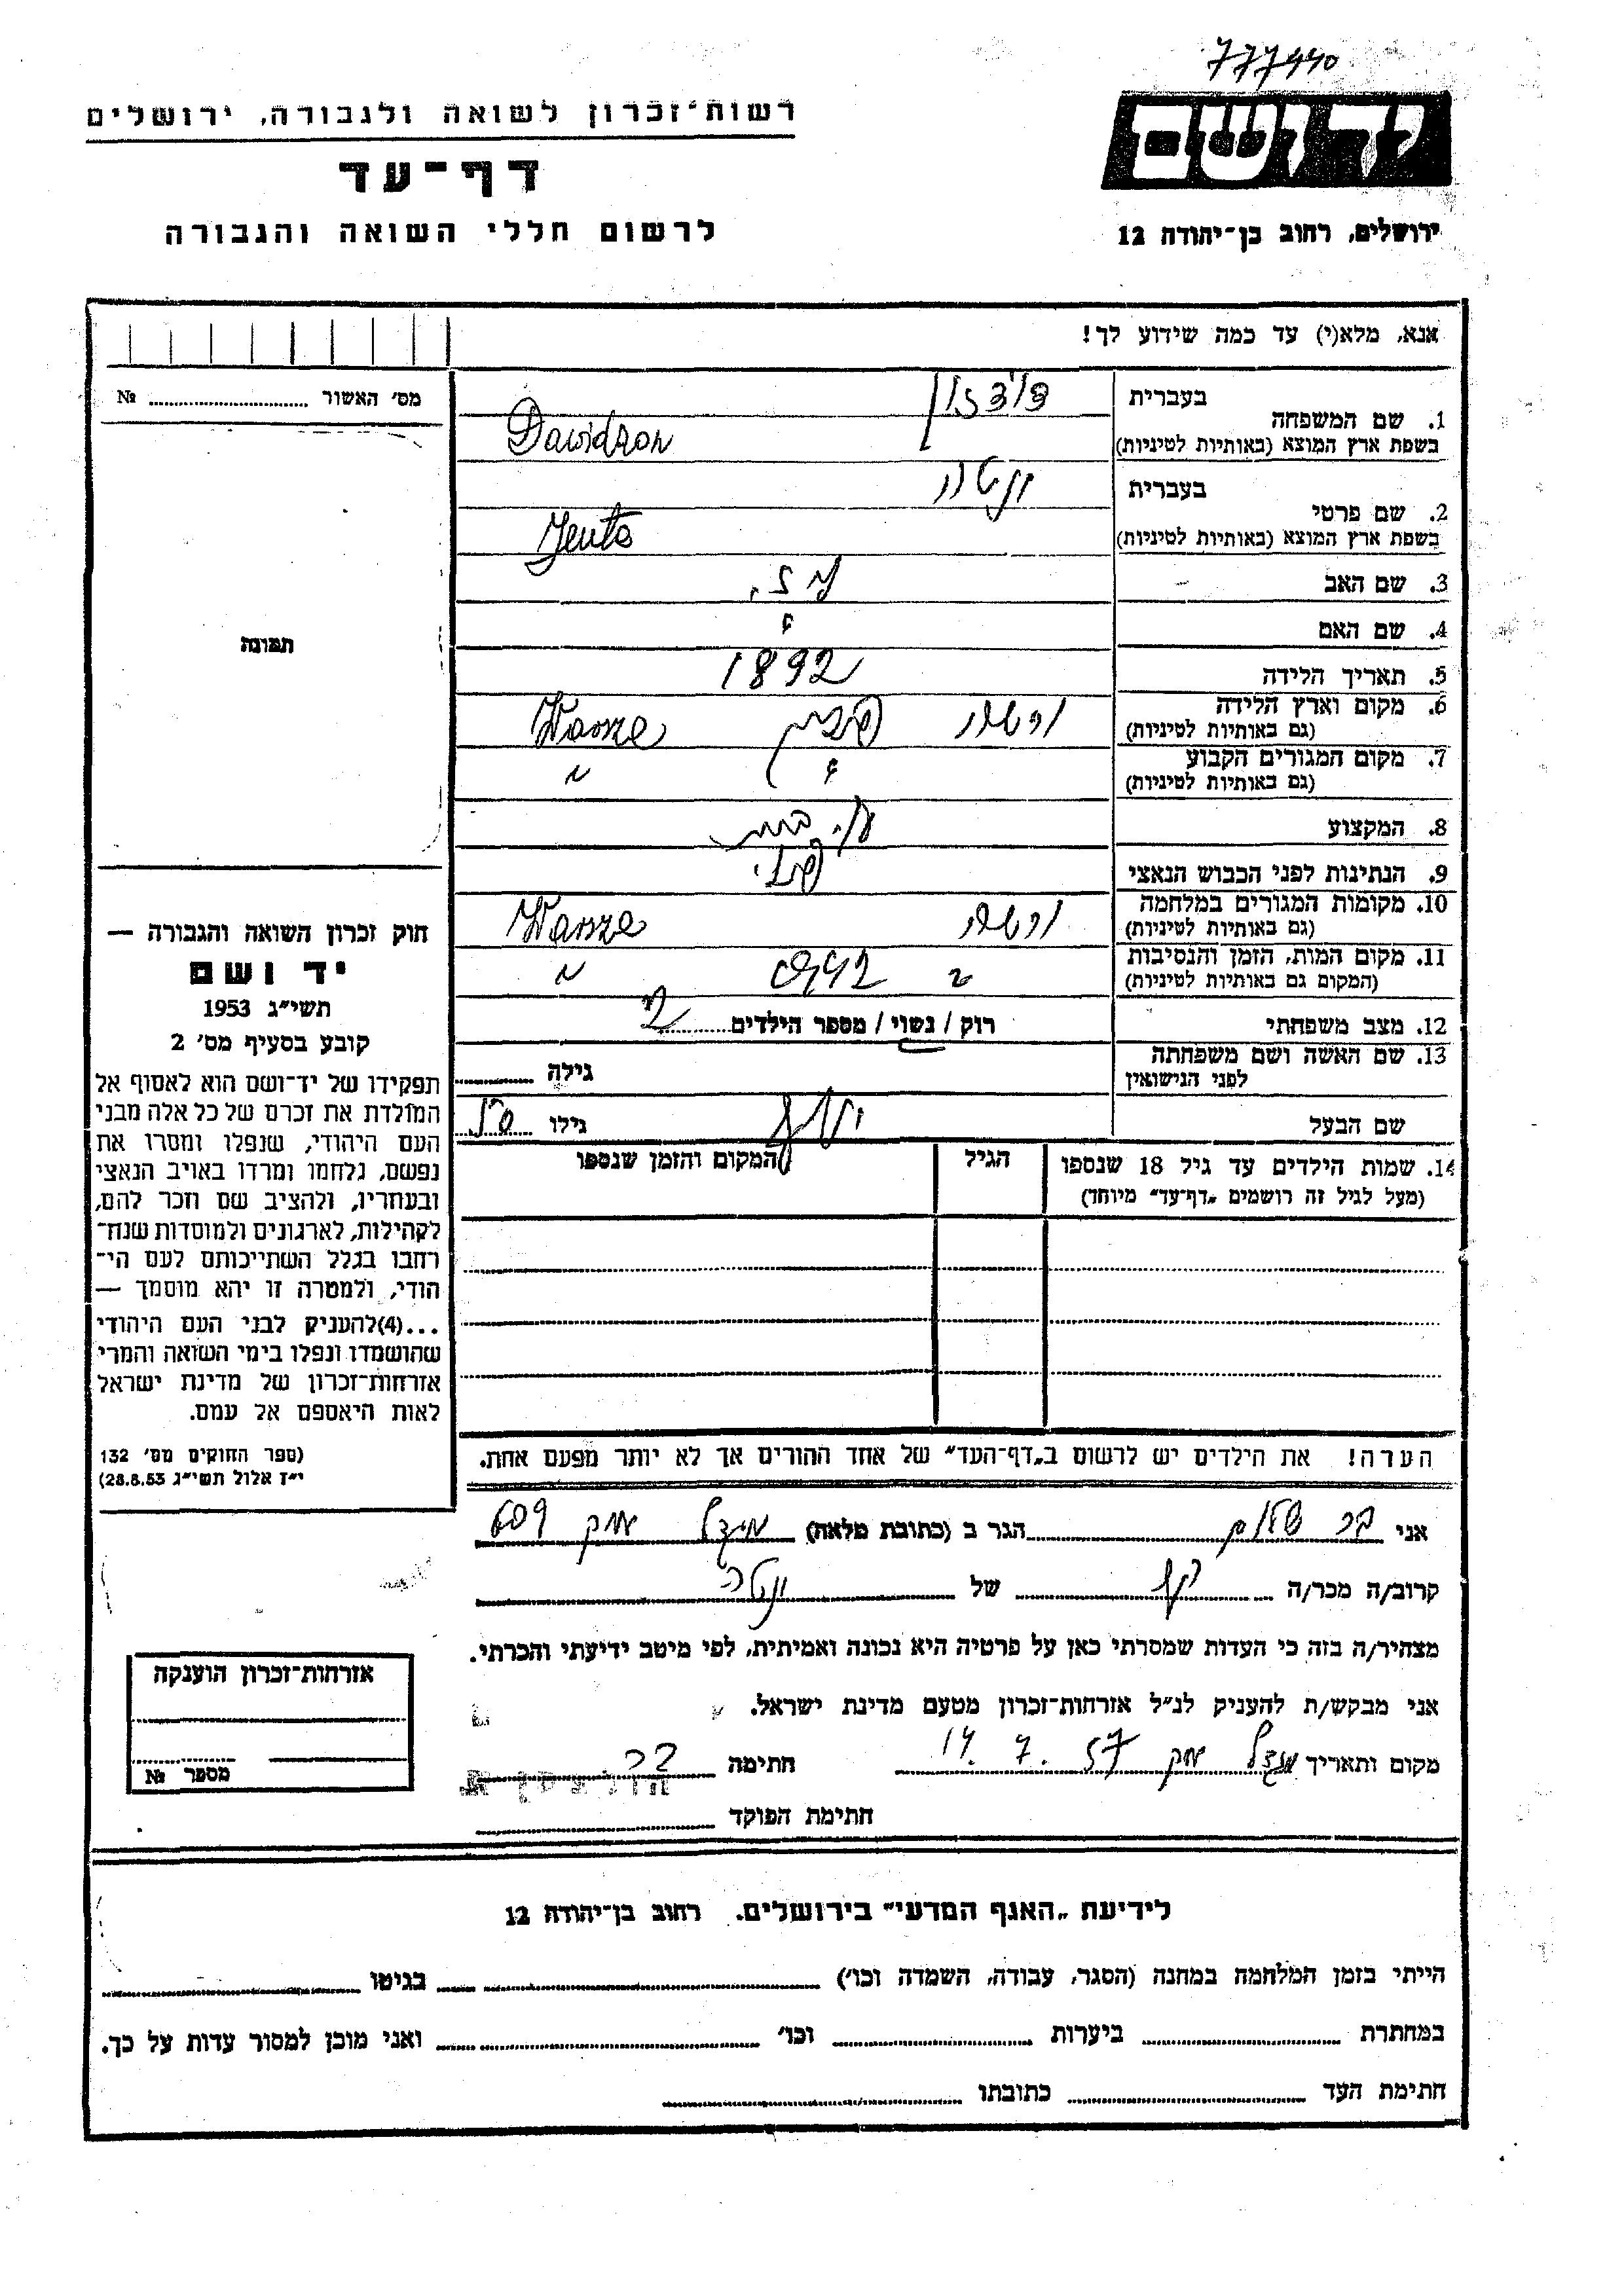 777440
רשות־זכרון לשואה ולגבורה, ירושלים
דף־עד
לרשום חללי השואה והגבורה
ידושם
ירושלים, רחוב בן־יהודה 12
אנא, מלא(י) עד כמה שידוע לך!
מס׳ האשור №
1. שם המשפחה בעברית
בשפת ארץ המוצא (באותיות לטיניות) Dawidzon
2. שם פרטי בעברית
בשפת ארץ המוצא (באותיות לטיניות) Jenta
3. שם האב
4. שם האם
5. תאריך הלידה 1892
6. מקום וארץ הלידה (גם באותיות לטיניות)
7. מקום המגורים הקבוע (גם באותיות לטיניות)
8. המקצוע
9. הנתינות לפני הכבוש הנאצי
10. מקומות המגורים במלחמה (גם באותיות לטיניות)
11. מקום המות, הזמן והנסיבות (המקום גם באותיות לטיניות)
12. מצב משפחתי רוק / נשוי / מספר הילדים
13. שם האשה ושם משפחתה לפני הנישואין גילה
שם הבעל גילו
14. שמות הילדים עד גיל 18 שנספו (מעל לגיל זה רושמים „דף־עד״ מיוחד) הגיל המקום והזמן שנספו
תמונה
חוק זכרון השואה והגבורה —
יד ושם
תשי״ג 1953
קובע בסעיף מס׳ 2
תפקידו של יד־ושם הוא לאסוף אל
המולדת את זכרם של כל אלה מבני
העם היהודי, שנפלו ומסרו את
נפשם, נלחמו ומרדו באויב הנאצי
ובעוזריו, ולהציב שם וזכר להם,
לקהילות, לארגונים ולמוסדות שנח־
רחבו בגלל השתייכותם לעם הי־
הודי, ולמטרה זו יהא מוסמך —
...(4)להעניק לבני העם היהודי
שהושמדו ונפלו בימי השואה והמרי
אזרחות־זכרון של מדינת ישראל
לאות היאספם אל עמם.
(ספר החוקים מס׳ 132
י״ז אלול תשי״ג 28.8.53)
הערה! את הילדים יש לרשום ב„דף־העד״ של אחד ההורים אך לא יותר מפעם אחת.
אני הגר ב (כתובת מלאה) מגדל עמק 609
קרוב/ה מכר/ה של
מצהיר/ה בזה כי העדות שמסרתי כאן על פרטיה היא נכונה ואמיתית, לפי מיטב ידיעתי והכרתי.
אני מבקש/ת להעניק לנ״ל אזרחות־זכרון מטעם מדינת ישראל.
מקום ותאריך מגדל עמק 14. 7. 57 חתימה
חתימת הפוקד
אזרחות־זכרון הוענקה
מספר №
לידיעת „האגף המדעי״ בירושלים, רחוב בן־יהודה 12
הייתי בזמן המלחמה במחנה (הסגר, עבודה, השמדה וכו׳) בגיטו
במחתרת ביערות וכו׳ ואני מוכן למסור עדות על כך.
חתימת העד כתובתו